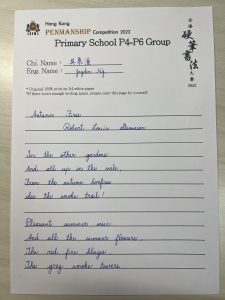 Hong Kong
PENMANSHIP Competition 2023
Primary School P4-P6 Group
Chi. Name :
Eng. Name : Jayden Ng
* Original 100% print on A4 white paper
*If there is not enough writing space, please copy this page by yourself
全港
硬筆書法
大賽
2023
Autumn Fires
Robert Louis Stevenson
In the other gardens
And all up in the vale,
From the autumn bonfires
See the smoke trail!
Pleasant summer over
And all the summer flowers
The red fire blazes,
The grey smoke towers